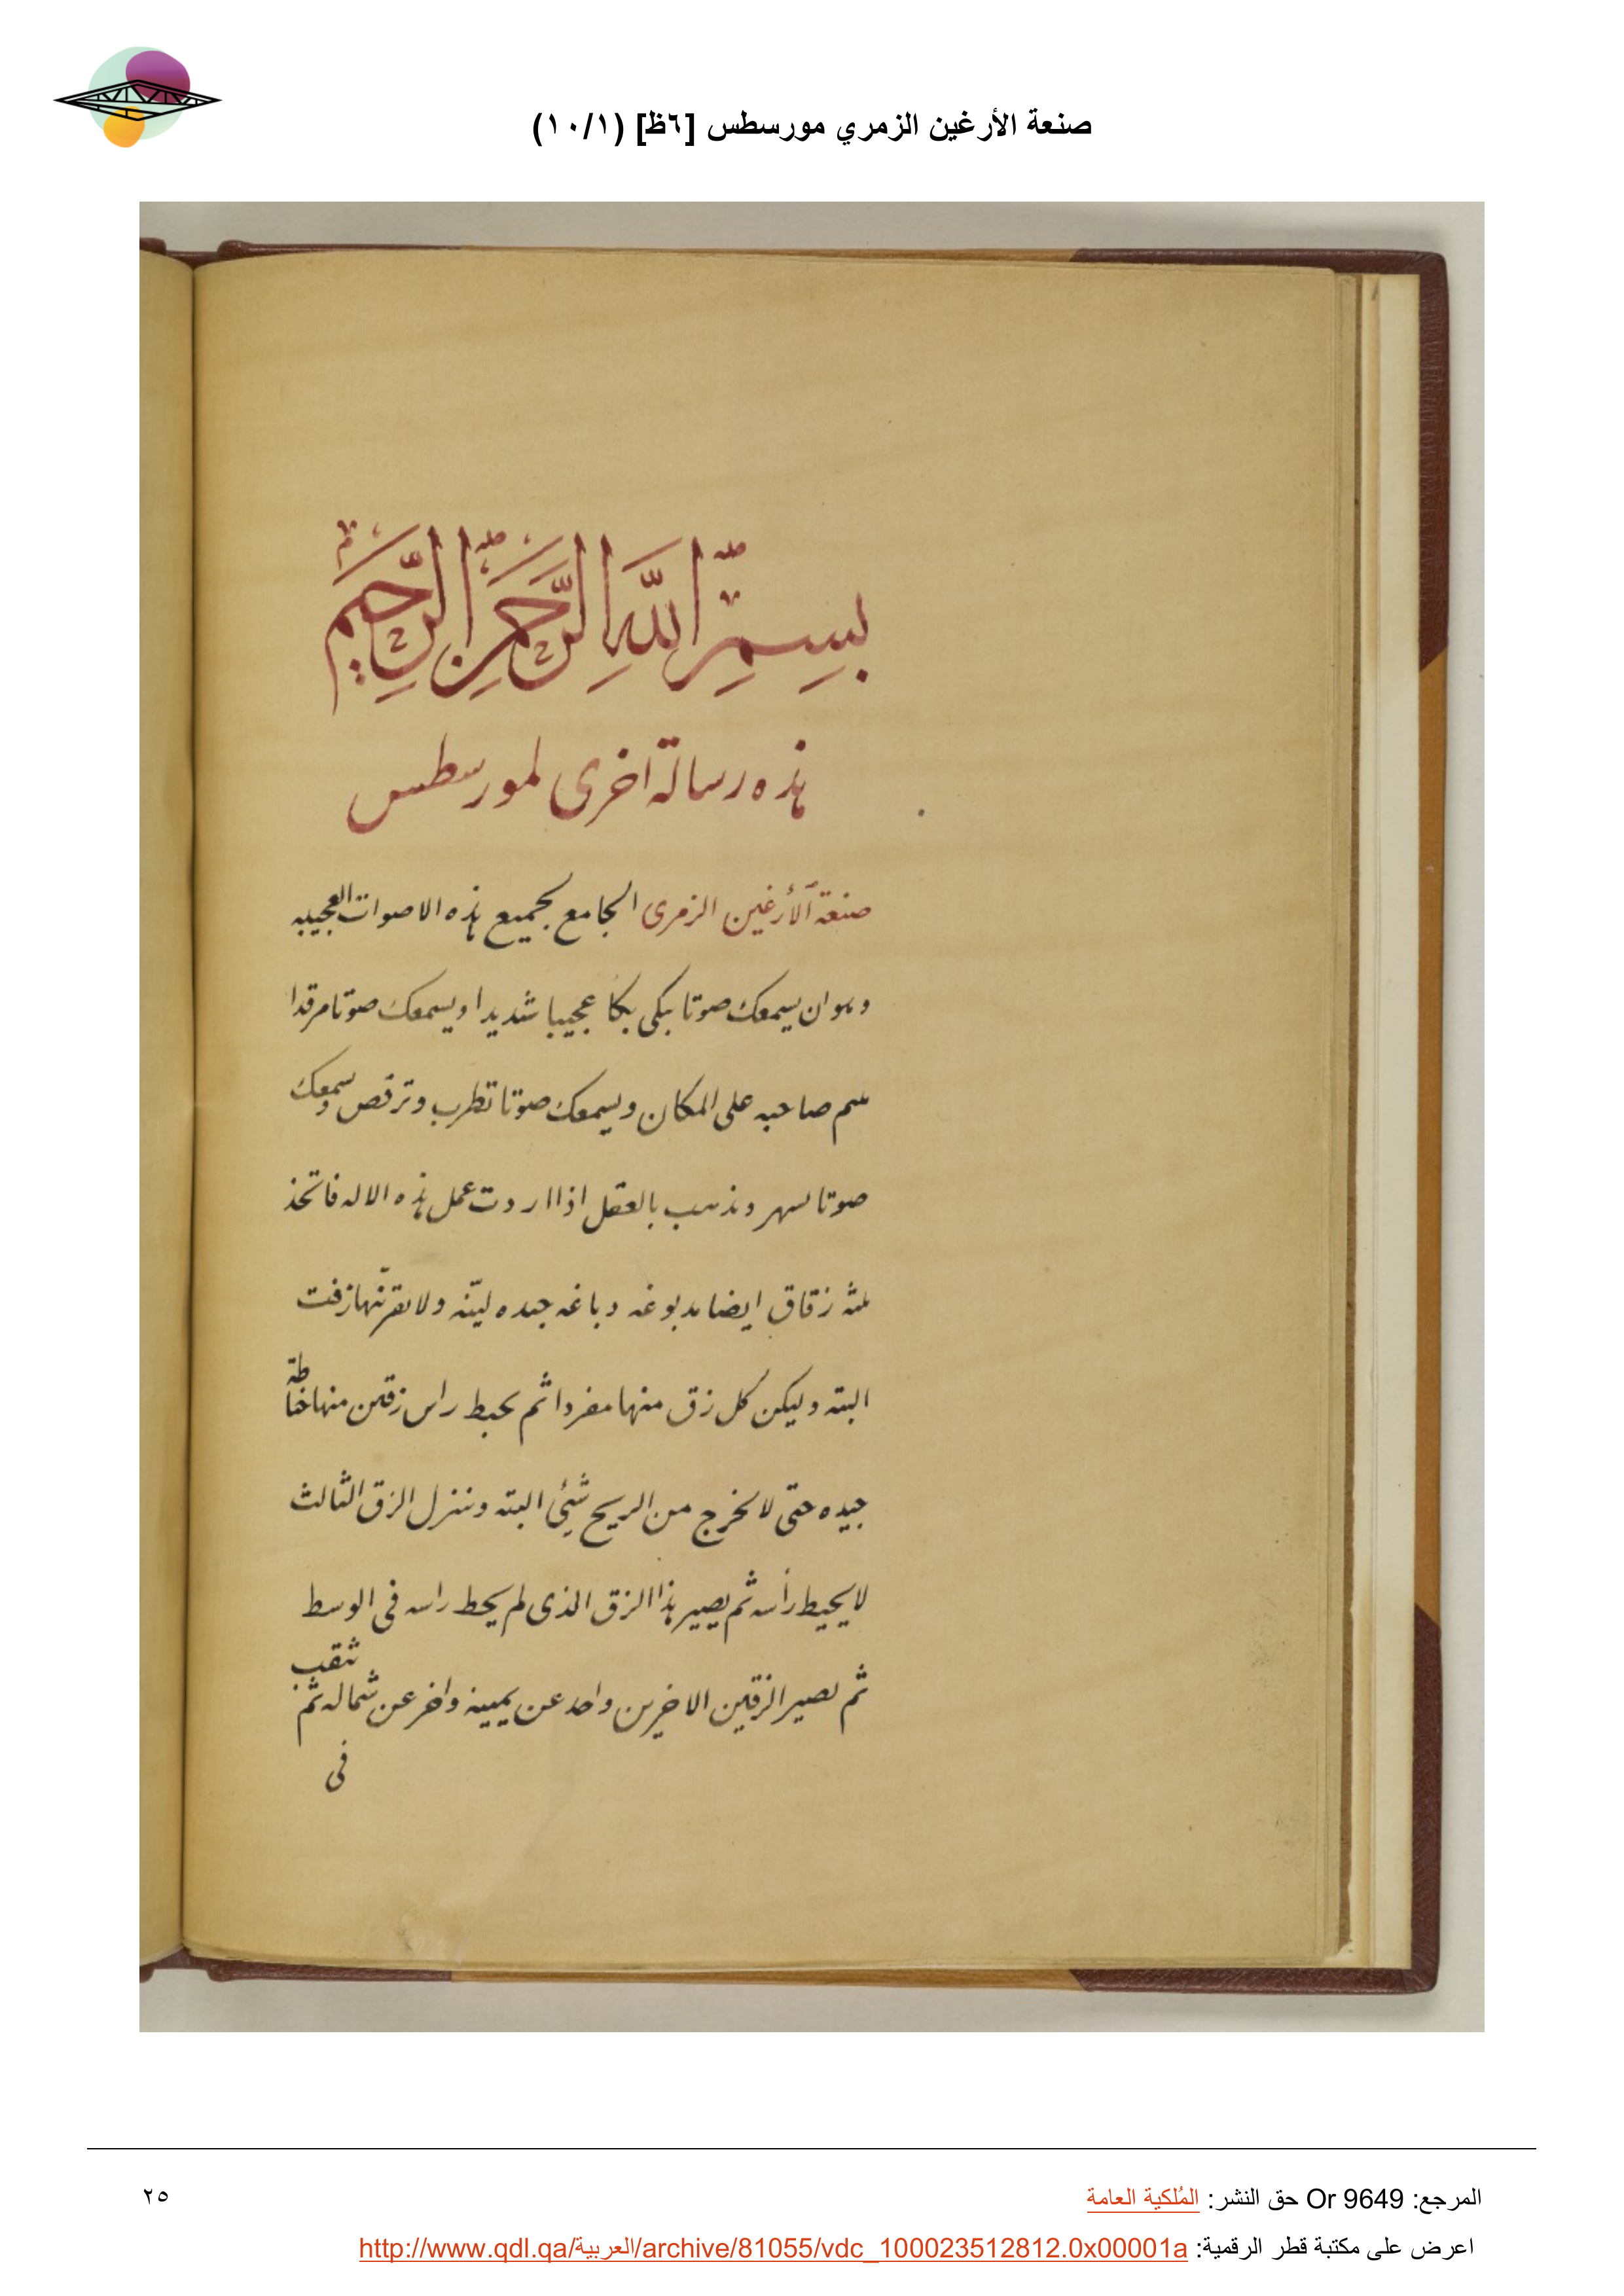 صنعة الأرغين الزمري مورسطس [٦ظ] (١٠/١)
بِسمِ اللهِ الرَّحمنِ الرَّحِيمِ
هذه رسالة اخرى لمورسطس
صنعة الأرغين الزمرى الجامع لجميع هذه الاصوات العجيبه
وهو ان يسمعك صوتا يبكى بكا عجيبا شديدا ويسمعك صوتا مرقدا
صاحبه على المكان ويسمعك صوتا تطرب وترقص ويسمعك
صوتا لسهر ويذهب بالعقل اذا اردت عمل هذه الاله فاتخذ
ثلثه زقاق ايضا مدبوغه دباغه جيده ليّنه ولا يقربنّها زفت
البته وليكن كل زق منها مفردا ثم يحيط راس زقين منها خياطة
جيده حتى لا يخرج من الريح شيئ البته وننزل الزق الثالث
لا يحيط رأسه ثم يصير هذا الزق الذى لم يحط راسه فى الوسط
ثم يصير الزقين الاخرين واحد عن يمينه واخر عن شماله ثم تثقب
فى
المرجع: Or 9649 حق النشر: المُلكية العامة
٢٥
اعرض على مكتبة قطر الرقمية: http://www.qdl.qa/العربية/archive/81055/vdc_100023512812.0x00001a